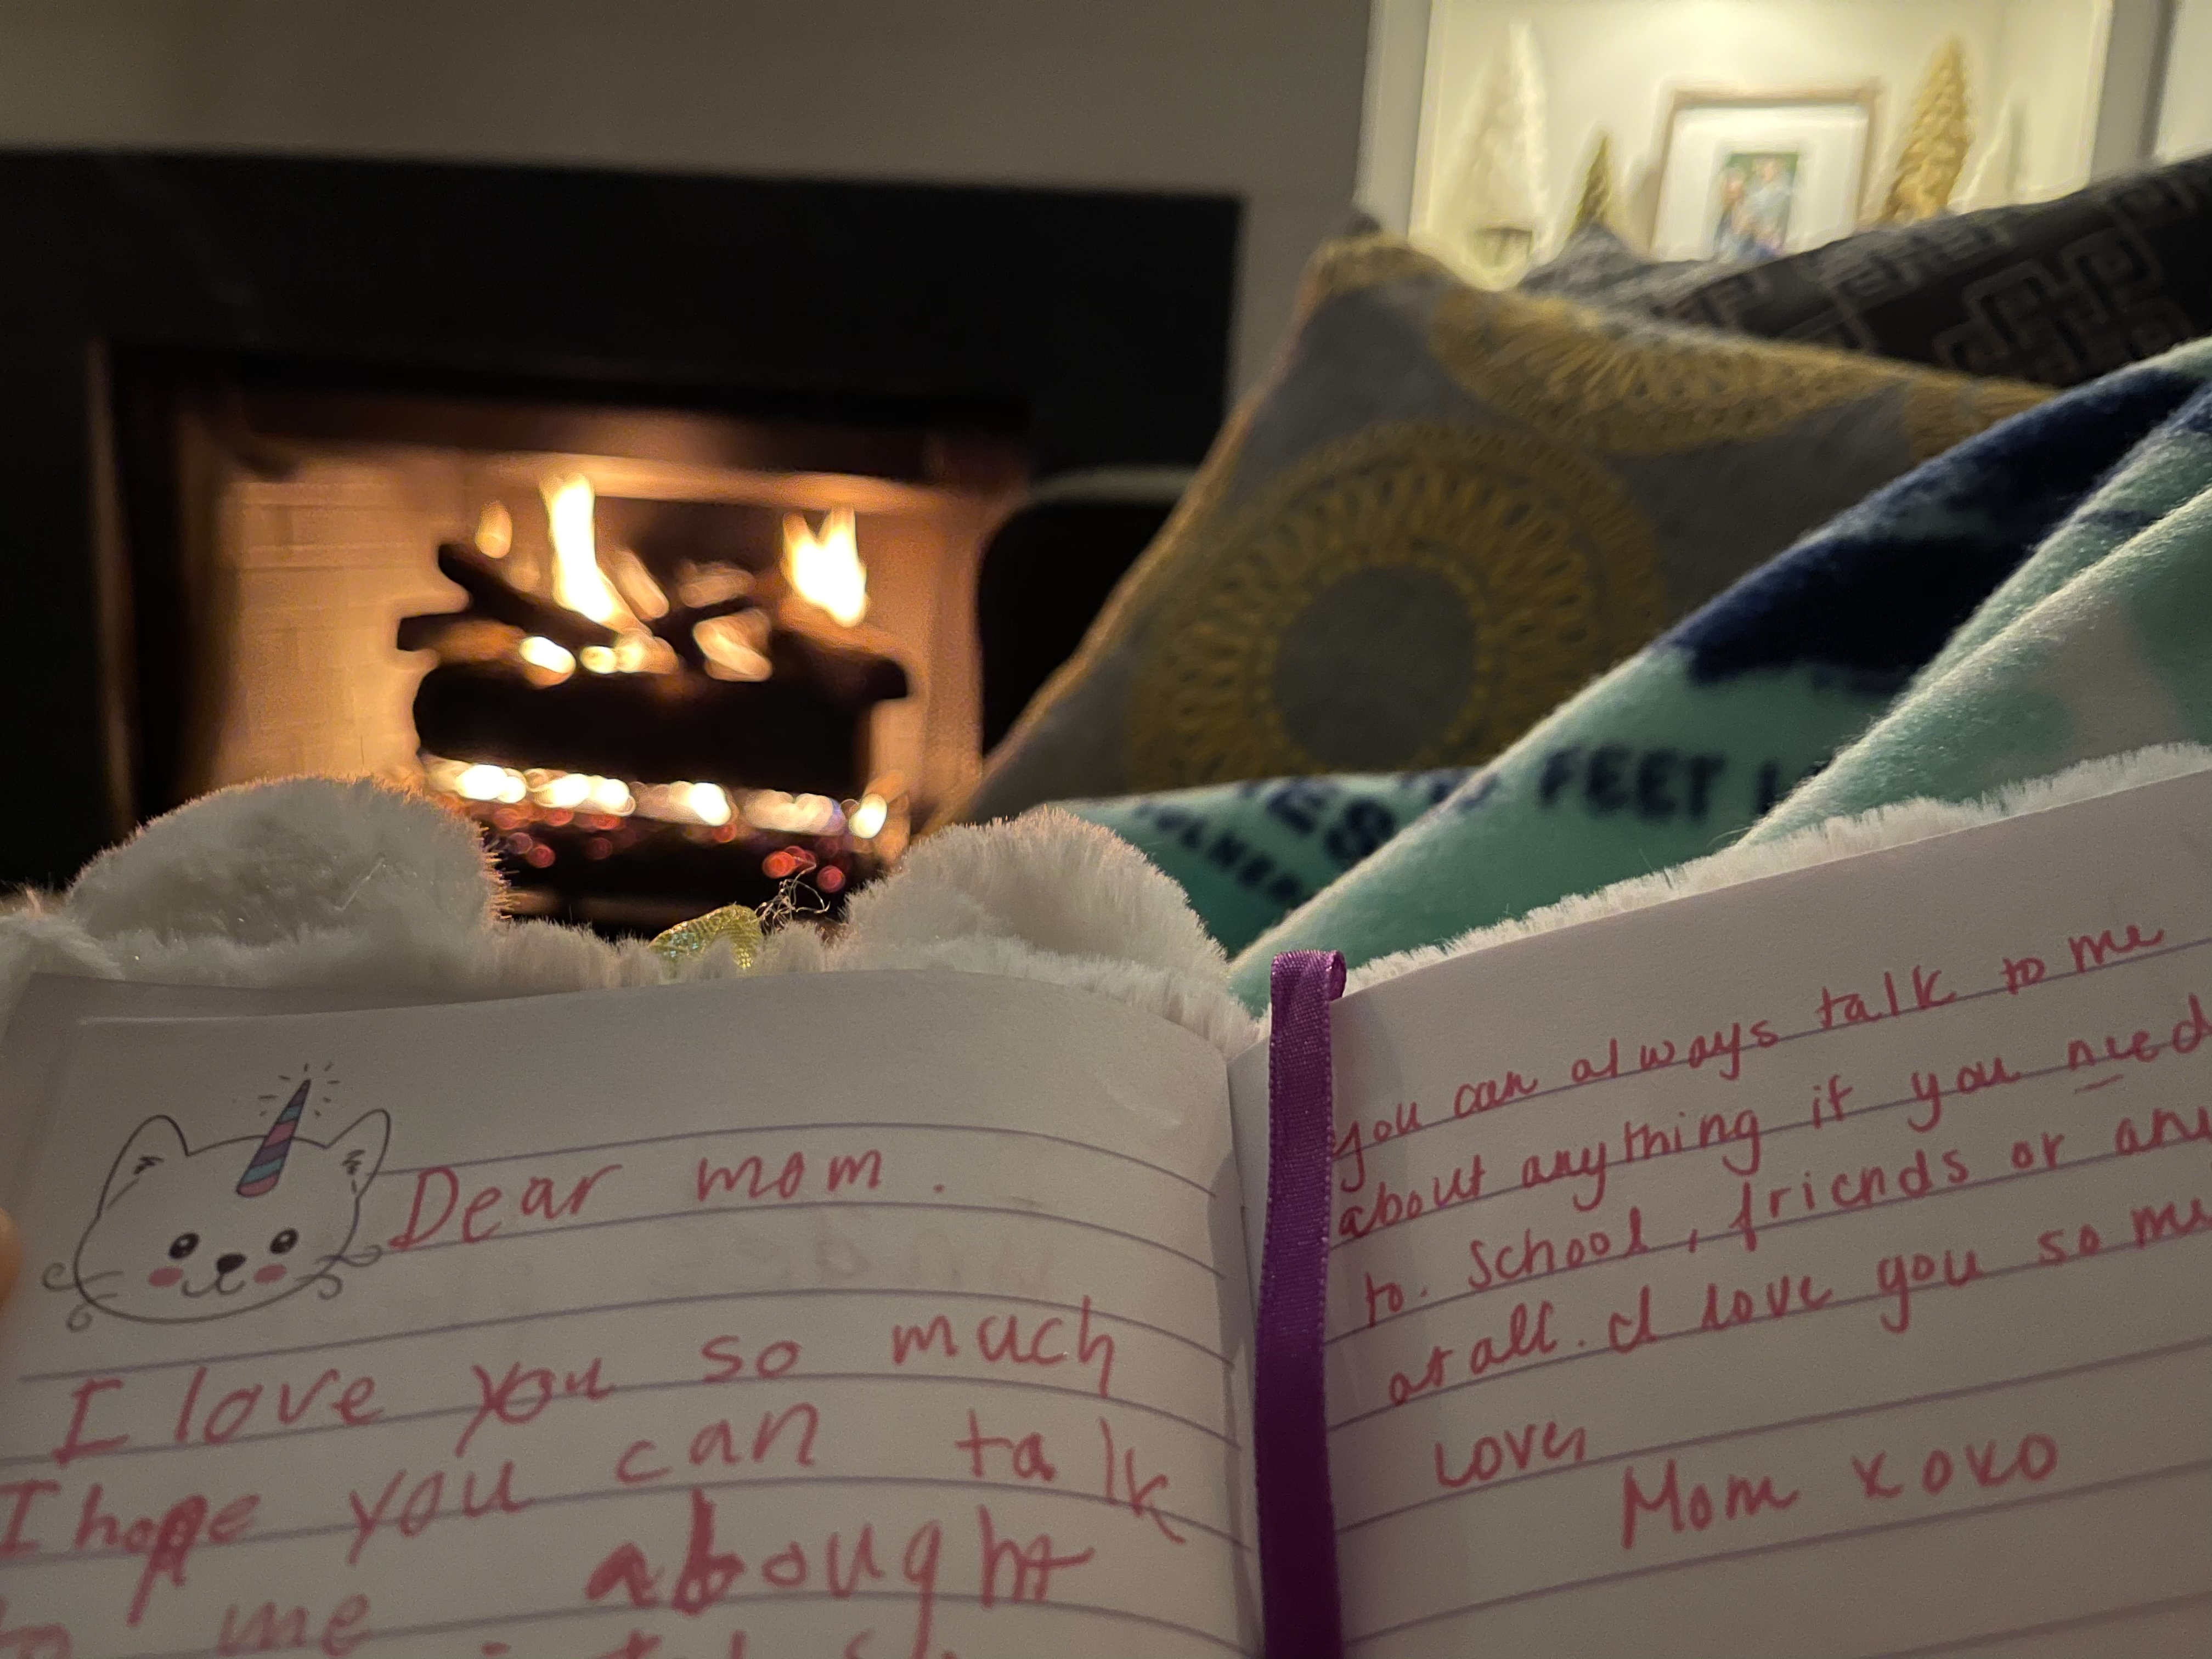 FEET
Dear mom.
I love you so much
I hope you can talk
to me abought
you can always talk to me
about anything if you need
to. School, friends or any
at all. I love you so mu
Love,
Mom xoxo